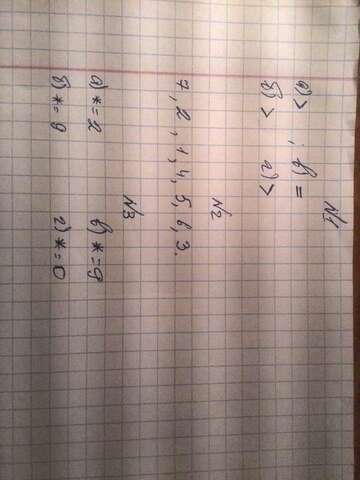 №1
а) > ; в) =
б) > г) >
№2
7, 2, 1, 4, 5, 6, 3.
№3
а) *=2 в) *=9
б) *=9 г) *=0